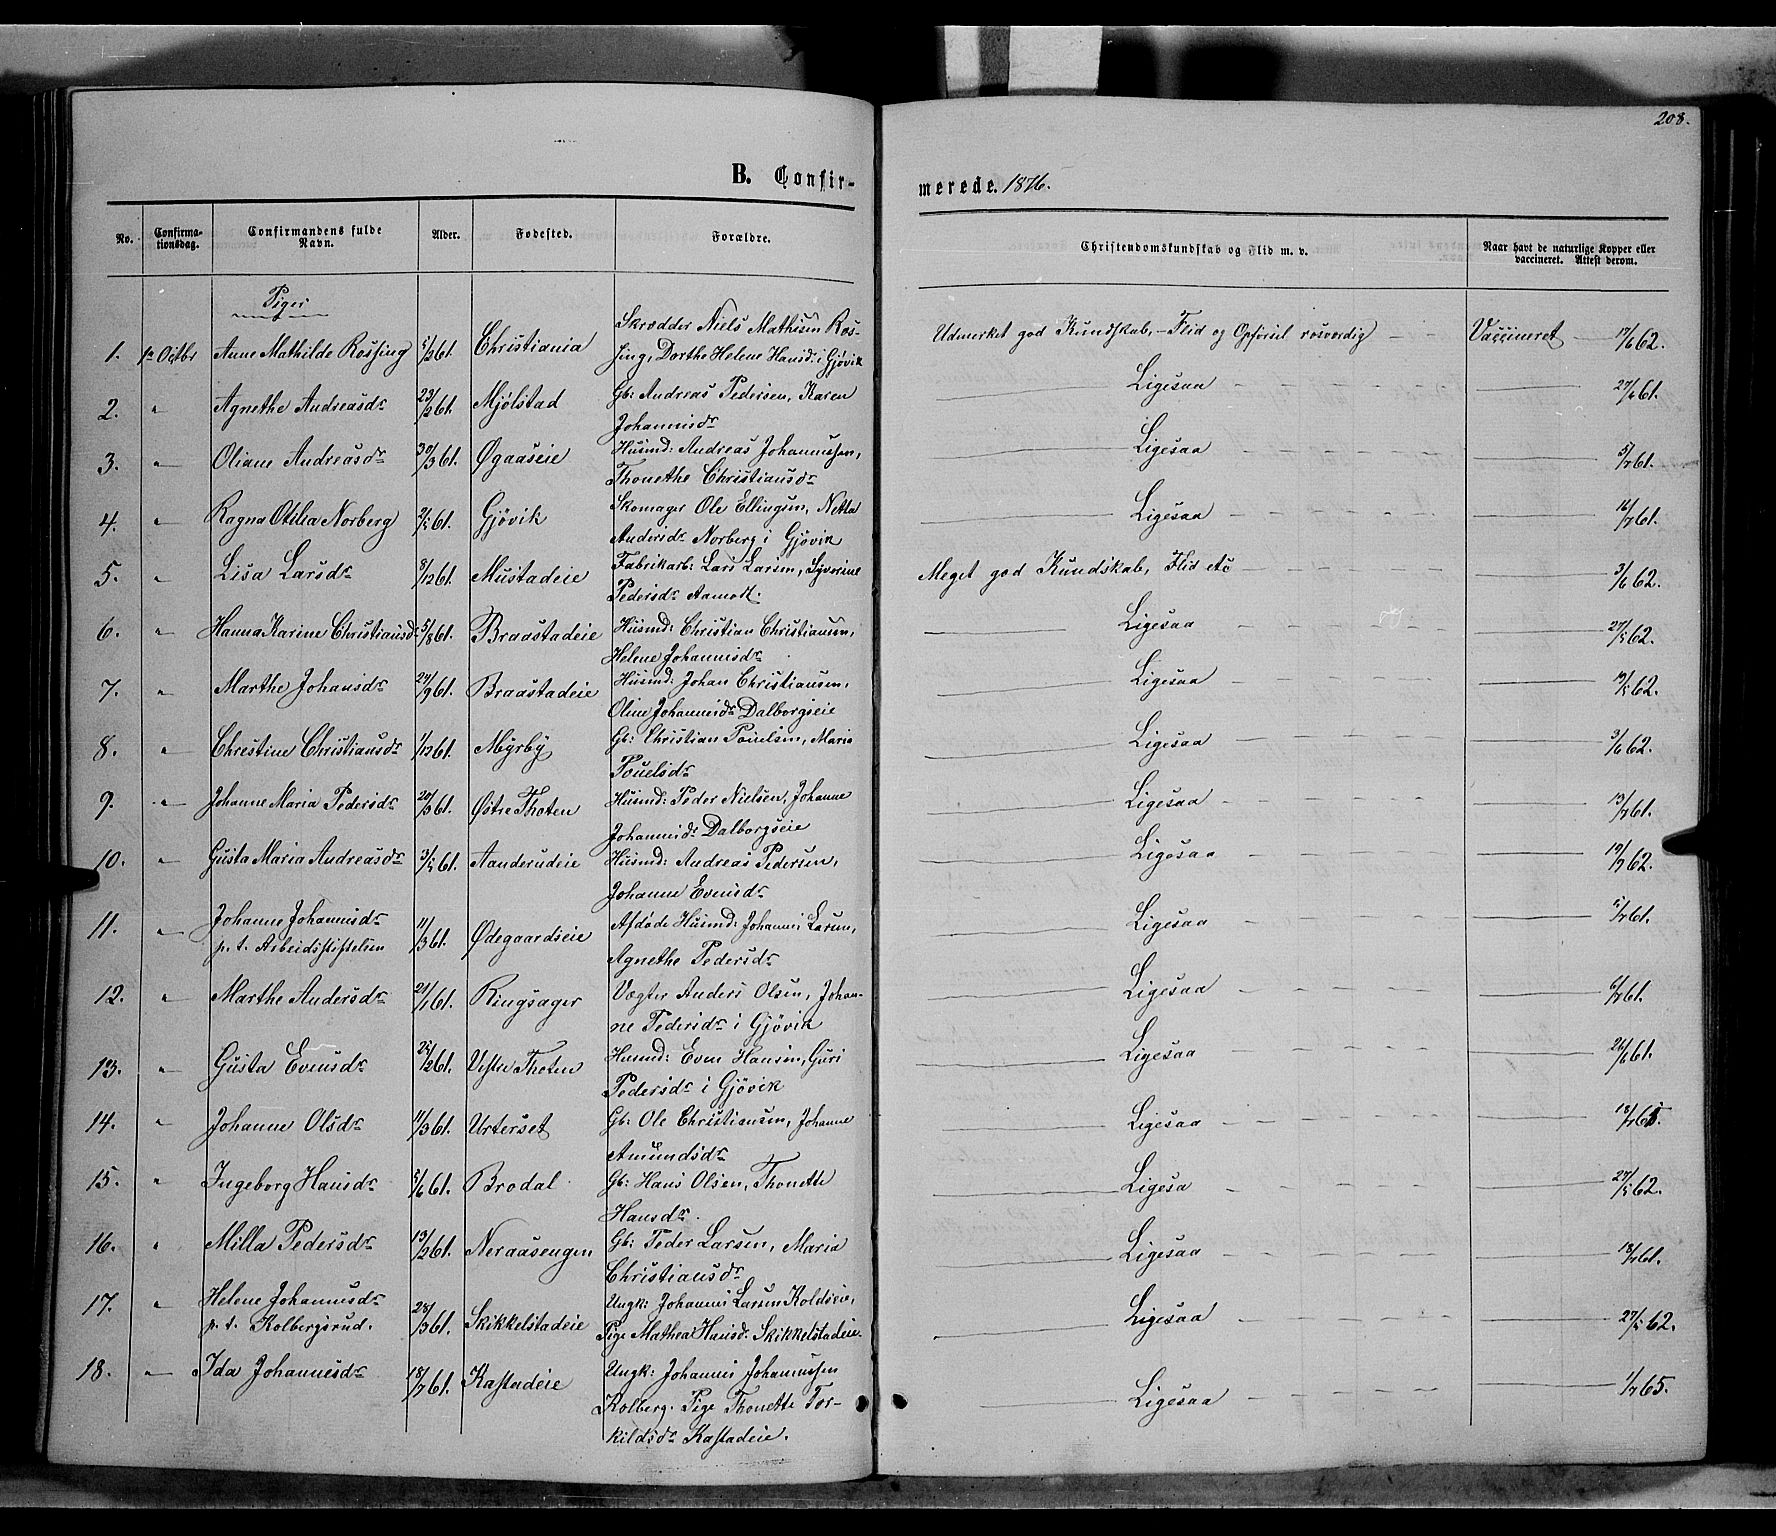 208.
B. Confir-
merede. 1876.
No.
Confirma-
tionsdag.
Confirmandens fulde
Navn.
Alder.
Fødested.
Forældre.
Christendomskundskab og Flid m. v.
Naar havt de naturlige Kopper eller
vaccineret. Attest derom.
Piger
1. 1e Octbr Anne Mathilde Rossing 5/361. Christiania Skrædder Niels Mathisen Ros-
sing, Dorthe Helene Hansdr i Gjøvik Udmerket god Kundskab, - Flid og Opførsel rosværdig Vaccineret 17/662.
2. " Agnethe Andreasdr 23/261. Mjølstad Gb: Andreas Pedersen, Karen
Johannisdr Ligesaa 27/661.
3. " Oliane Andreasdr 30/361. Øgaaseie Husmd: Andreas Johannessen,
Thonethe Christiansdr Ligesaa 5/761.
4. " Ragna Otilia Norberg 2/561. Gjövik Skomager Ole Ellingsen, Netta
Andersdr Norberg i Gjøvik Ligesaa 16/761.
5. " Lisa Larsdr 8/1261. Mustadeie Fabrikarb: Lars Larsen, Syverine
Pedersdr Aamott. Meget god Kundskab, Flid etc 3/662.
6. " Hanna Karine Christiansdr 5/861. Braastadeie Husmd: Christian Christiansen,
Helene Johannisdr Ligesaa 27/562.
7. " Marthe Johansdr 24/961. Braastadeie Husmd: Johan Christiansen,
Oline Johannesdr Dalborgseie Ligesaa 19/562.
8. " Christine Christiansdr 1/1261. Myrby Gb: Christian Pouelsen, Maria
Pouelsdr Ligesaa 3/662.
9. " Johanne Maria Pedersdr 20/361. Østre Thoten Husmd: Peder Nielsen, Johanne
Johannisdr Dalborgseie Ligesaa 13/761.
10. " Gusta Maria Andreasdr 3/561. Aanderudeie Husmd: Andreas Pedersen,
Johanne Evensdr Ligesaa 19/762.
11. " Johanne Johannisdr
p. t. Arbeidsstiftelsen 11/361. Ødegaardseie Afdøde Husmd: Johannes Larsen,
Agnethe Pedersdr Ligesaa 5/761.
12. " Marthe Andersdr 21/161. Ringsager Vægter Anders Olsen, Johan-
ne Pedersdr i Gjövik Ligesaa 6/761.
13. " Gusta Evensdr 25/261. Vestre Thoten Husmd: Even Hansen, Guri
Pedersdr i Gjövik Ligesaa 26/661.
14. " Johanne Olsdr 11/361. Urterset Gb: Ole Christiansen, Johanne
Amundsdr Ligesaa 18/765.
15. " Ingeborg Hansdr 5/661. Brodal Gb: Hans Olsen, Thonette
Hansdr. Ligesa 27/562.
16. " Milla Pedersdr 13/261. Neraasengen Gb: Peder Larsen, Maria
Christiansdr Ligesaa 18/761.
17. " Helene Johannesdr
p. t. Kolbergsrud. 28/361. Skikkelstadeie Ungk: Johannes Larsen Koldseie,
Pige Mathea Hansd: Skikkelstadeie. Ligesaa 27/562.
18. " Ida Johannesdr 18/761. Kastadeie Ungk: Johannes Johannessen
Kolberg. Pige Thonette Tor-
kildsdr Kastadeie. Ligesaa 1/765.